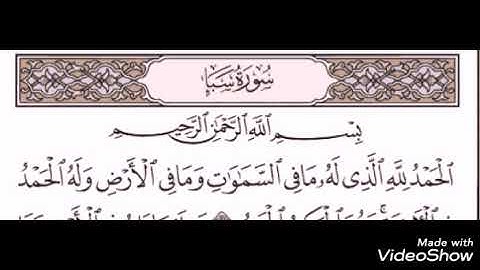 سُورَةُ سَبَإٍ
بِسْمِ ٱللَّهِ ٱلرَّحْمَٰنِ ٱلرَّحِيمِ
ٱلْحَمْدُ لِلَّهِ ٱلَّذِى لَهُۥ مَا فِى ٱلسَّمَٰوَٰتِ وَمَا فِى ٱلْأَرْضِ وَلَهُ ٱلْحَمْدُ
Made with
VideoShow